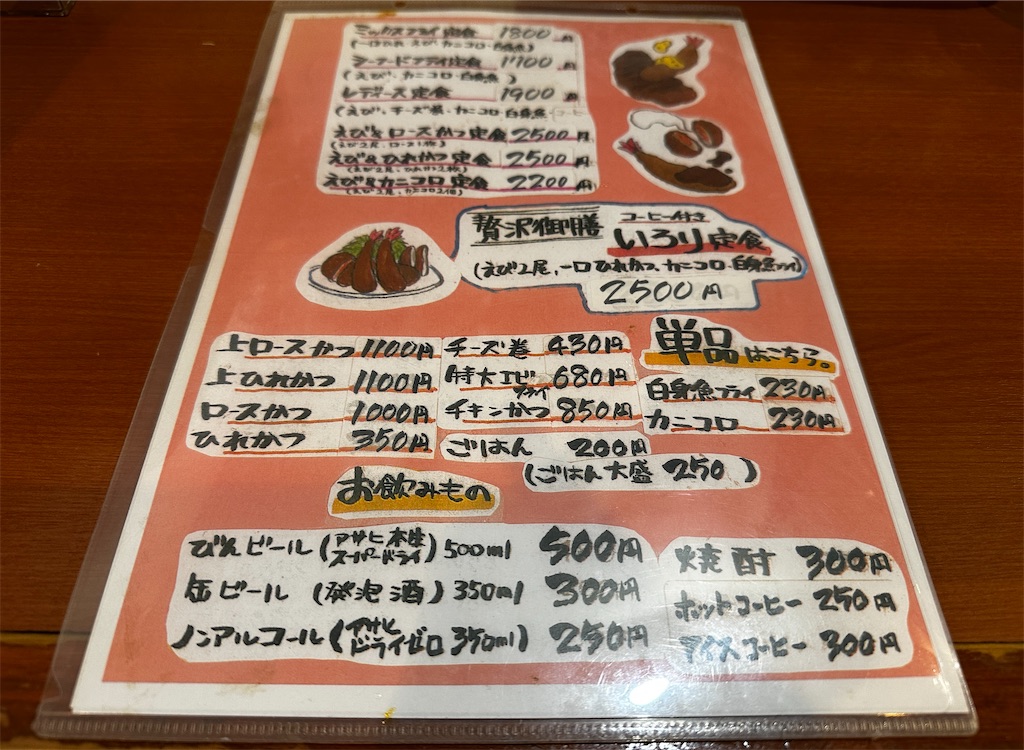 ミックスフライ定食 1800円
(一口ひれ・えび・カニコロ・白身魚)
シーフードフライ定食 1700円
(えび、カニコロ・白身魚)
レディース定食 1900円
(えび、チーズ巻、カニコロ・白身魚・コーヒー
えび&ロースかつ定食 2500円
(えび2尾、ロース1枚)
えび&ひれかつ定食 2500円
(えび2尾、ひれかつ2枚)
えび&カニコロ定食 2200円
(えび2尾、カニコロ2個)
贅沢御膳 コーヒー付き
いろり定食
(えび2尾、一口ひれかつ、カニコロ・白身魚フライ)
2500円
単品はこちら。
上ロースかつ 1100円
上ひれかつ 1100円
ロースかつ 1000円
ひれかつ 350円
チーズ巻 430円
特大エビフライ 680円
チキンかつ 850円
ごはん 200円
(ごはん大盛 250)
白身魚フライ 230円
カニコロ 230円
お飲みもの
びんビール(アサヒ本生スーパードライ)500ml 500円
缶ビール (発泡酒)350ml 300円
ノンアルコール(アサヒドライゼロ350ml) 250円
焼酎 300円
ホットコーヒー 250円
アイスコーヒー 300円